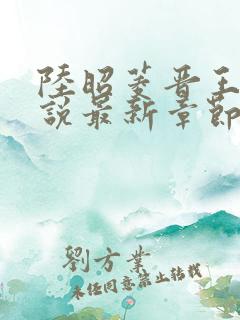 陸昭菱晋王
説最新章節
劉方業
未经同意禁止转载